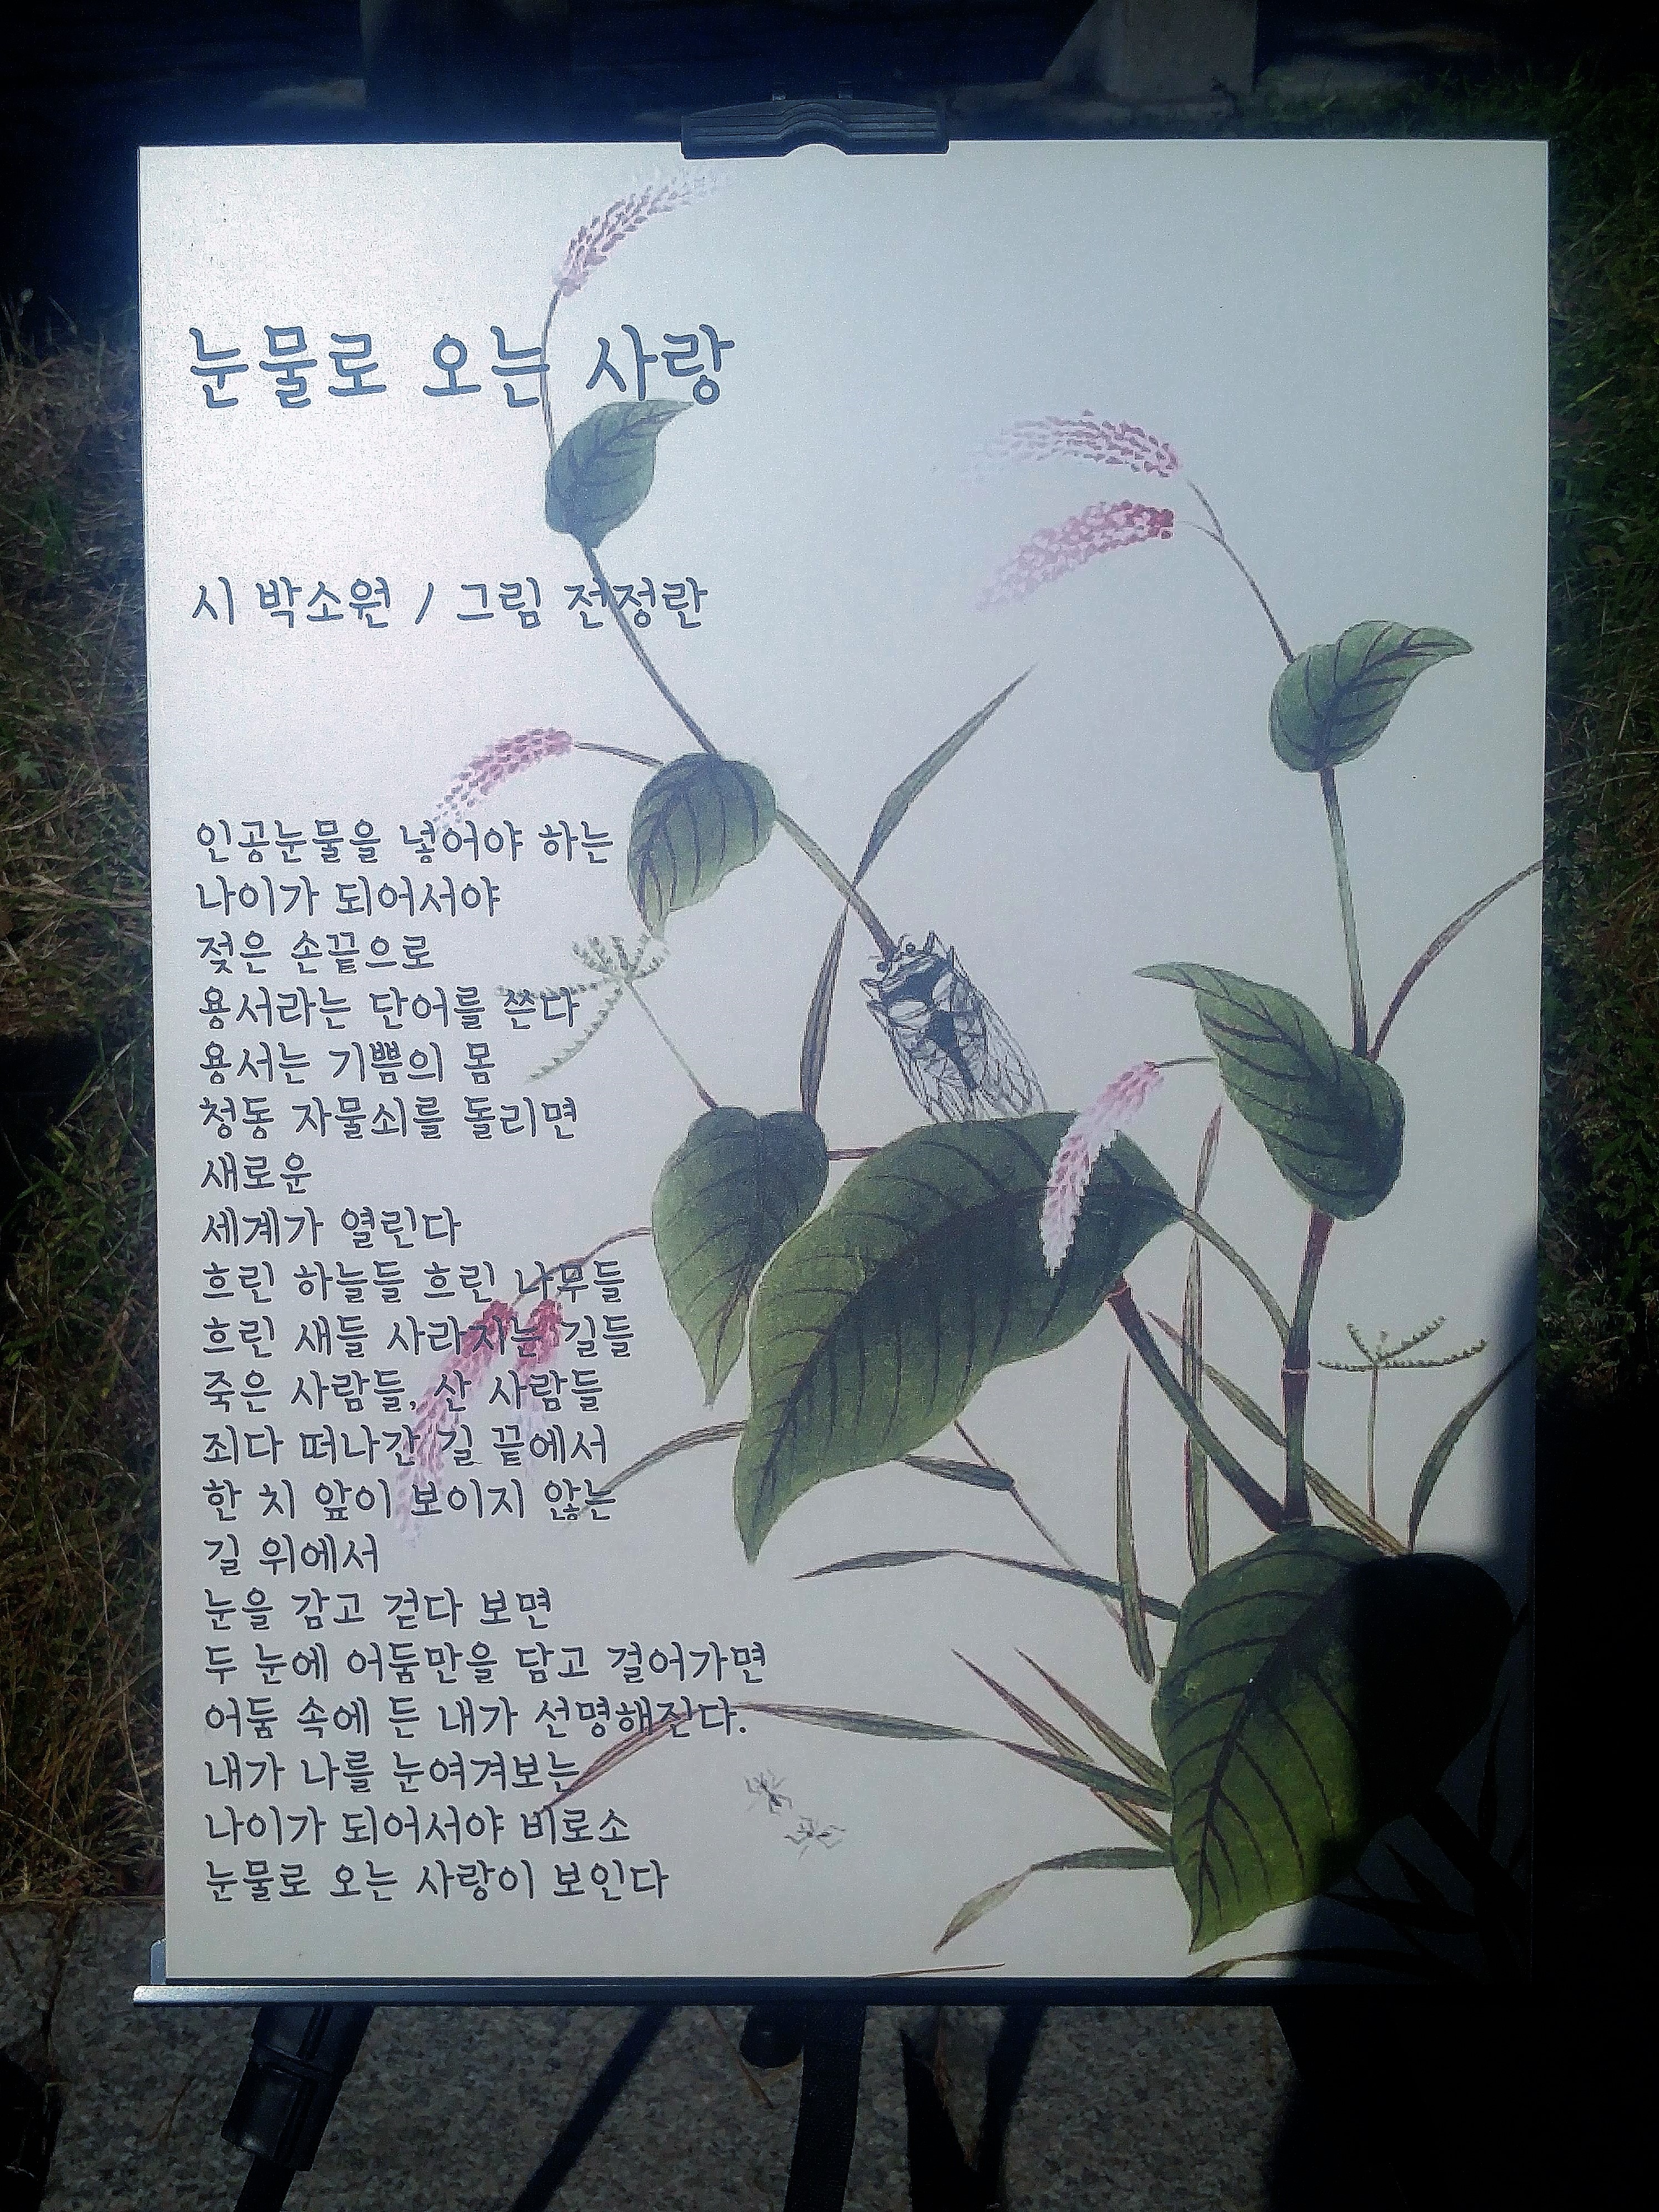 눈물로 오는 사랑
시 박소원 / 그림 전정란
인공눈물을 넣어야 하는
나이가 되어서야
젖은 손끝으로
용서라는 단어를 쓴다
용서는 기쁨의 몸
청동 자물쇠를 돌리면
새로운
세계가 열린다
흐린 하늘들 흐린 나무들
흐린 새들 사라지는 길들
죽은 사람들, 산 사람들
죄다 떠나간 길 끝에서
한 치 앞이 보이지 않는
길 위에서
눈을 감고 걷다 보면
두 눈에 어둠만을 담고 걸어가면
어둠 속에 든 내가 선명해진다.
내가 나를 눈여겨보는
나이가 되어서야 비로소
눈물로 오는 사랑이 보인다